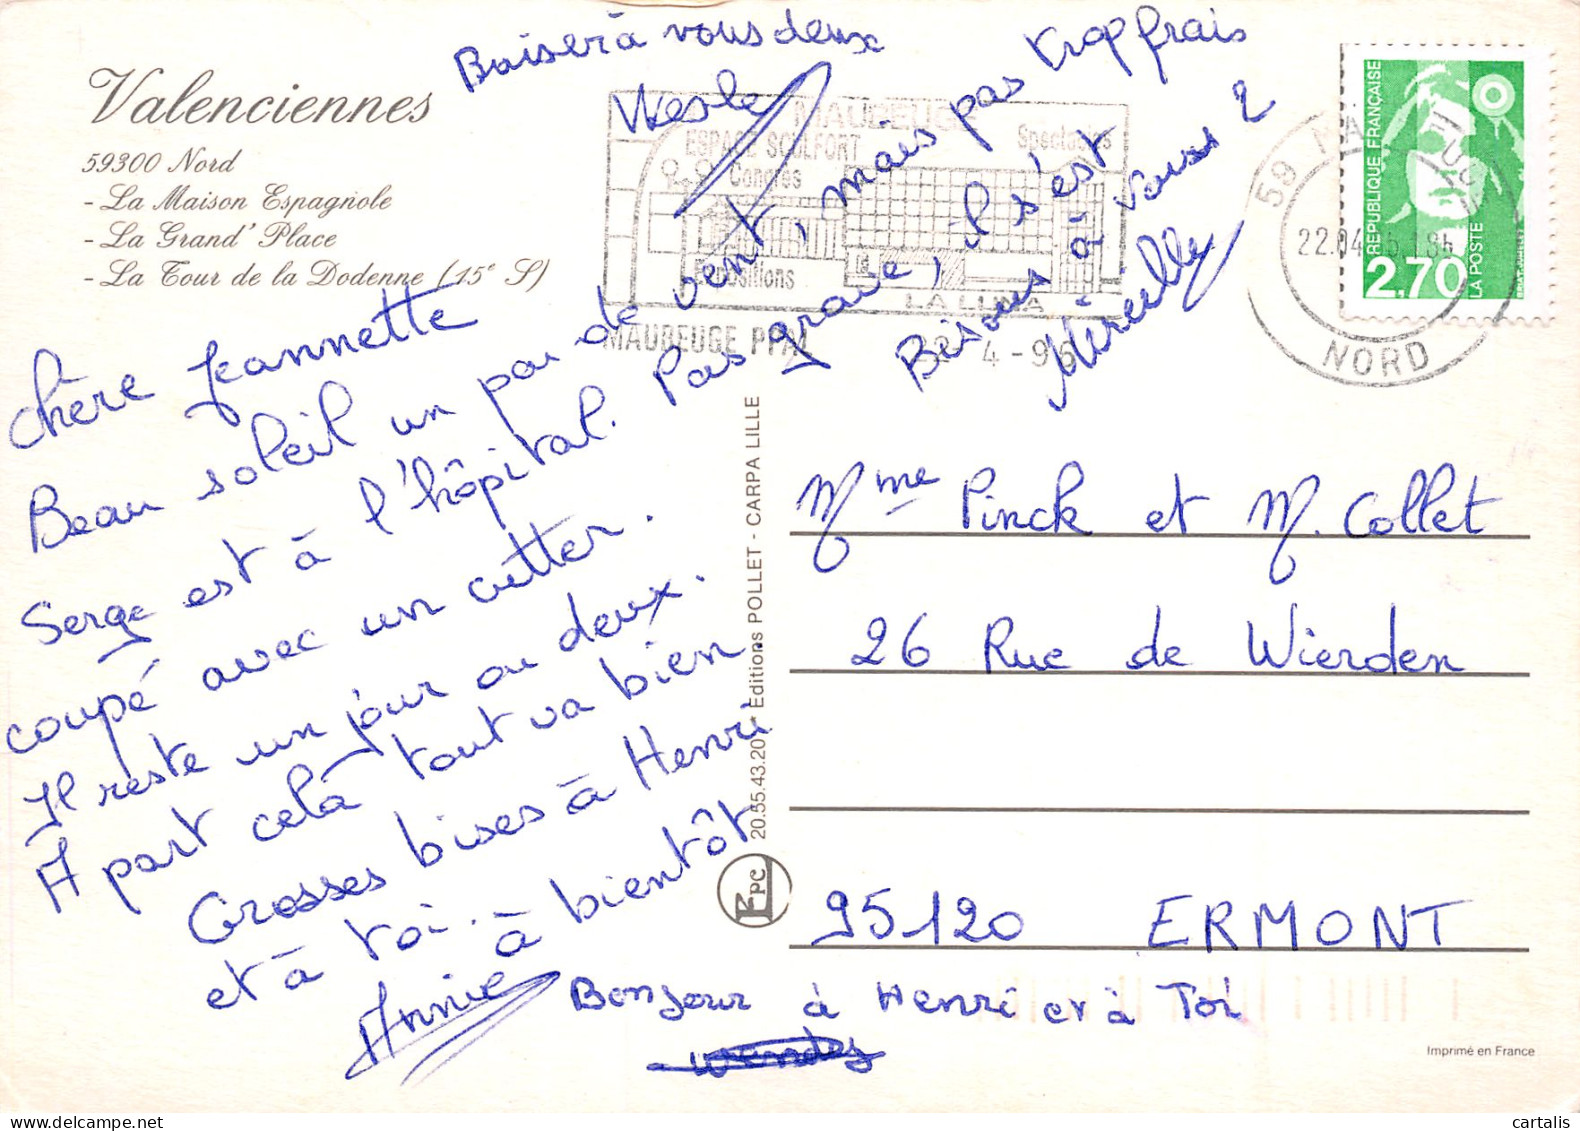 Valenciennes
59300 Nord
- La Maison Espagnole
- La Grand' Place
- La Tour de la Dodenne (15e S)
Baiser à vous deux
MAUBEUGE
ESPACE SCULFORT
Spectacles
Congrès
Expositions
LA LUNA
MAUBEUGE PPAL
22-4-96
59 MAUBEUGE
22.04
NORD
RÉPUBLIQUE FRANÇAISE
2,70
LA POSTE
Chère Jeannette
Beau soleil un peu de vent, mais pas trop frais
Serge est à l'hôpital. Pas grave, il s'est
coupé avec un cutter.
Il reste un jour ou deux.
À part celà tout va bien.
Grosses bises à Henri
et à toi. à bientôt
Annie
Bisous à vous 2
Mireille
20.55.43.20 * Editions POLLET - CARPA LILLE
EPC
Mme Pinck et M. Collet
26 Rue de Wierden
95120 ERMONT
Bonjour à Henri et à Toi
Imprimé en France
cartalis